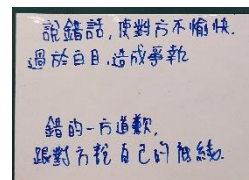 說錯話,使對方不愉快.
過於白目,造成爭執
錯的一方道歉,
跟對方說自己的底線.